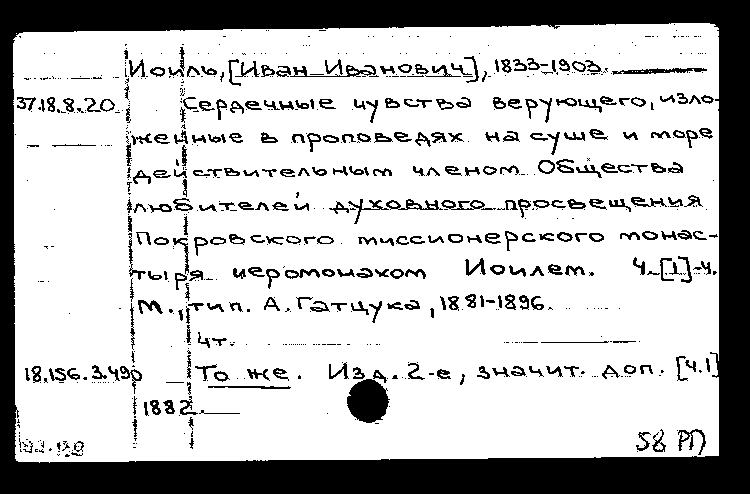 Иоиль, [Иван Иванович], 1833-1903.
37.18.8.20 Сердечные чувства верующего, изло-
женные в проповедях на суше и море
действительным членом Общества
любителей духовного просвещения
Покровского миссионерского монас-
тыря иеромонахом Иоилем. Ч. [1]-4.
М., тип. А. Гатцука, 1881-1896.
4т.
18.156.3.490 То же. Изд. 2-е, значит. доп. [Ч.1]
1882.
58 РП